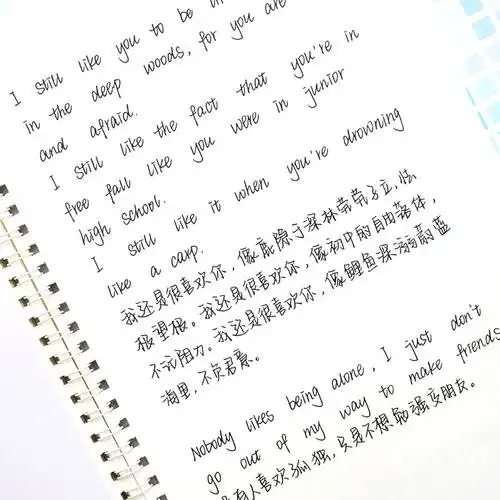 I still like you to be in
in the deep woods, for you are
and afraid.
I still like the fact that you're in
free fall like you were in junior
high school.
I still like it when you're drowning
like a carp.
我还是很喜欢你，像鹿隙于深林茕茕孑立，怯
极望极。我还是很喜欢你，像初中的自由落体，
不沅阻力。我还是很喜欢你，像鲤鱼深溺蔚蓝
海里，不负君意。
Nobody likes being alone, I just don't
go out of my way to make friends
有人喜欢孤独，只是不想勉强交朋友。